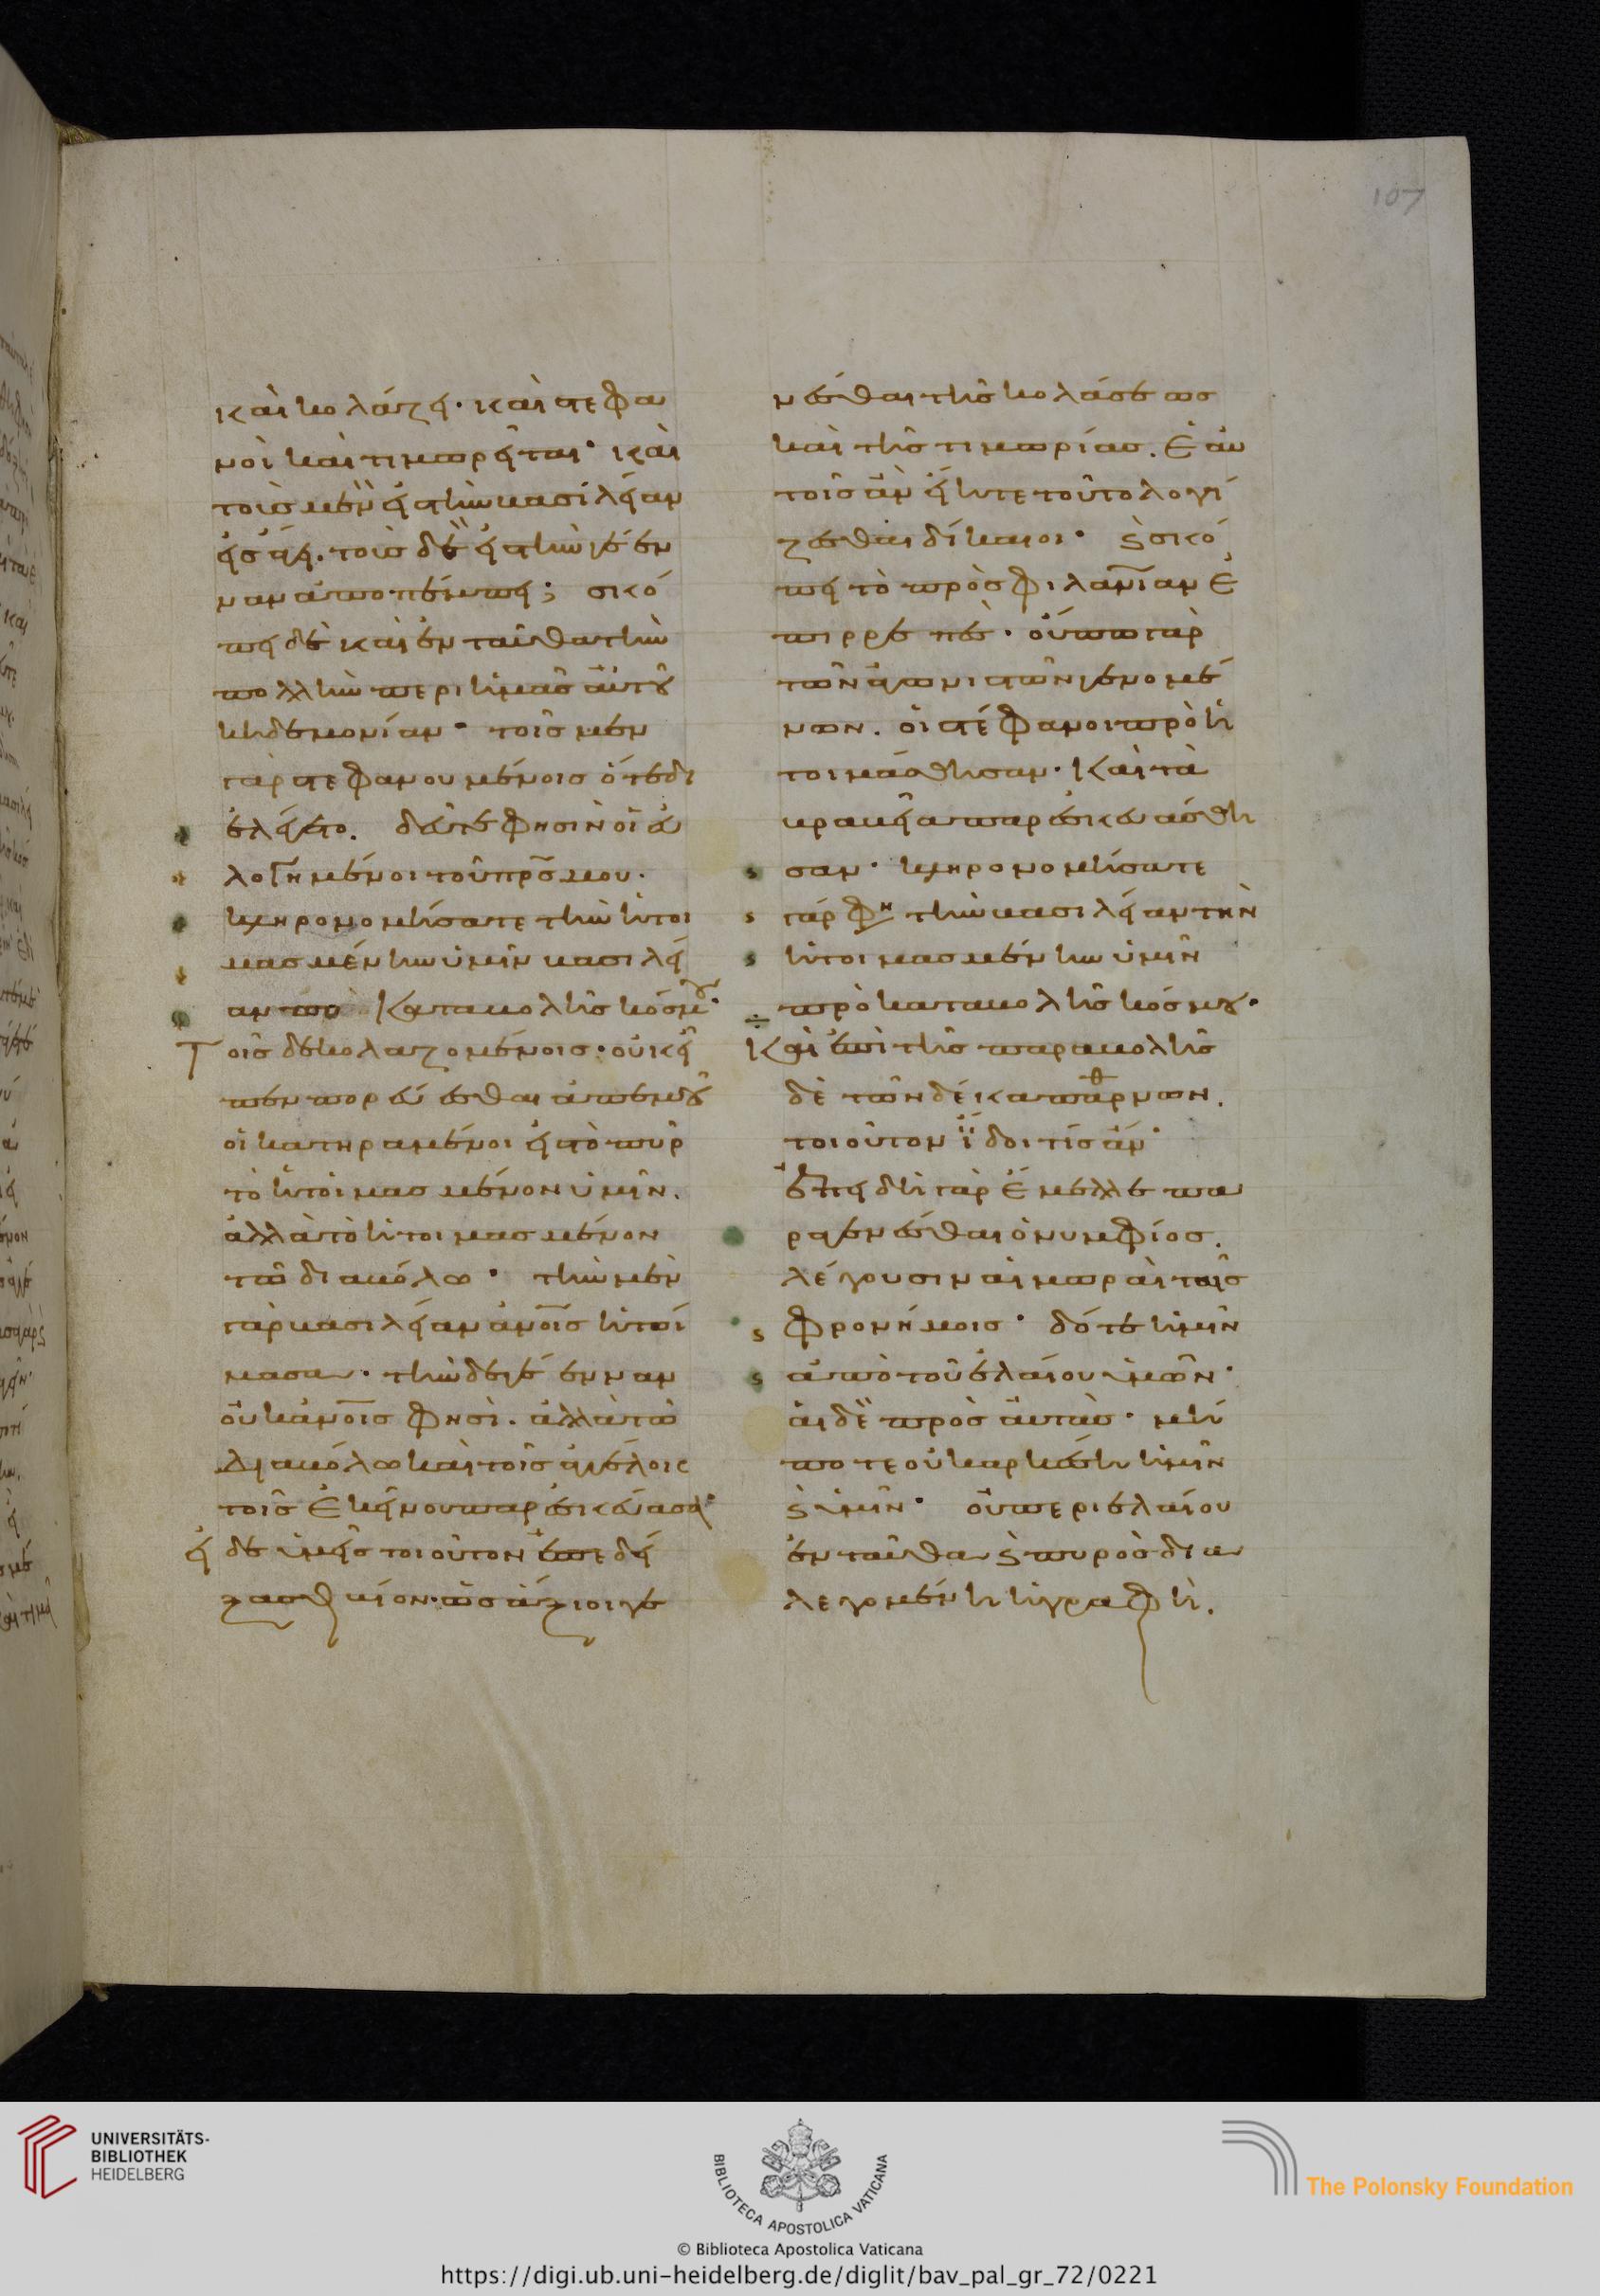 107
καὶ κολάζει· καὶ στεφα
νοῖ καὶ τιμωρεῖται· καὶ
τοὺς μὲν εἰς τὴν βασιλείαν
εἰσάγει. τοὺς δὲ εἰς τὴν γέεν
ναν ἀποπέμπει; σκό
πει δὲ καὶ ἐνταῦθα τὴν
πολλὴν περὶ ἡμᾶς αὐτοῦ
κηδεμονίαν· τοῖς μὲν
γὰρ στεφανουμένοις ὅτε δι
ελέγετο. δεῦτε φησὶν οἱ εὐ
λογημένοι τοῦ πρς μου.
κληρονομήσατε τὴν ἡτοι
μασμένην ὑμῖν βασιλεί
αν πρὸ καταβολῆς κόσμου·
Τοῖς δὲ κολαζομένοις· οὐκ εἶ
πεν πορεύεσθαι ἀπ' ἐμοῦ
οἱ κατηραμένοι εἰς τὸ πῦρ
τὸ ἡτοιμασμένον ὑμῖν.
ἀλλὰ τὸ ἡτοιμασμένον
τῶ διαβόλω· τὴν μὲν
γὰρ βασιλείαν ἀνοις ἡτοί
μασα· τὴν δὲ γέενναν
οὐκ ἀνοις φησὶ. ἀλλὰ τῶ
διαβόλω καὶ τοῖς ἀγγέλοις
τοῖς ἐκείνου παρεσκεύασα·
εἰ δὲ ὑμεῖς τοιοῦτον ἐπεδεί
ξασθε βίον· ὡς ἄξιοι γε
νέσθαι τῆς κολάσεως
καὶ τῆς τιμωρίας. ἑαυ
τοῖς ἂν εἴητε τοῦτο λογί
ζεσθαι δίκαιοι· ϛ σκό
πει τὸ πρὸς φιλανιαν ἐ
πιρρεπές· οὔπω γὰρ
τῶν ἀγωνιστῶν γενομέ
νων. οἱ στέφανοι προη
τοιμάσθησαν· Καὶ τὰ
βραβεῖα παρεσκευάσθη
σαν· κληρονομήσατε
γάρ φη τὴν βασιλείαν τὴν
ἡτοιμασμένην ὑμῖν
πρὸ καταβολῆς κόσμου·
Καὶ ἐπὶ τῆς παραβολῆς
δὲ τῶν δέκα παρθνων.
τοιοῦτον ἴδοι τίς ἄν·
ἐπειδὴ γὰρ ἔμελλε πα
ραγενέσθαι ὁ νυμφίος.
λέγουσιν αἱ μωραὶ ταῖς
φρονήμοις· δότε ἡμῖν
ἀπὸ τοῦ ἐλαίου ὑμῶν·
αἱ δὲ πρὸς αὐτάς· μή
ποτε οὐκ ἀρκέσῃ ἡμῖν
ϛ ὑμῖν· οὐ περὶ ἐλαίου
ἐνταῦθα ϛ πυρὸς δια
λεγομένη ἡ γραφὴ.
UNIVERSITÄTS-
BIBLIOTHEK
HEIDELBERG
BIBLIOTECA APOSTOLICA VATICANA
The Polonsky Foundation
© Biblioteca Apostolica Vaticana
https://digi.ub.uni-heidelberg.de/diglit/bav_pal_gr_72/0221